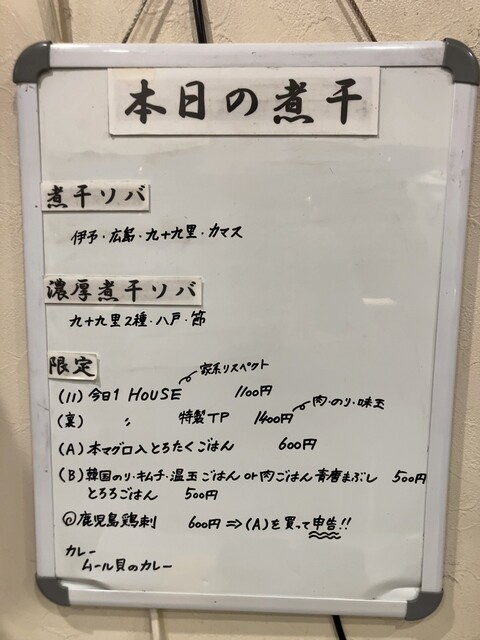 本日の煮干
煮干ソバ
伊予・広島・九十九里・カマス
濃厚煮干ソバ
九十九里2種・八戸・節
限定
家系リスペクト
(11) 今日1 HOUSE 1100円
肉・のり・味玉
(裏) 〃 特製TP 1400円
(A) 本マグロ入とろたくごはん 600円
(B) 韓国のり・キムチ・温玉ごはん or 肉ごはん青唐まぶし 500円
とろろごはん 500円
鹿児島鶏刺 600円 ⇒ (A)を買って申告!!
カレー
ムール貝のカレー